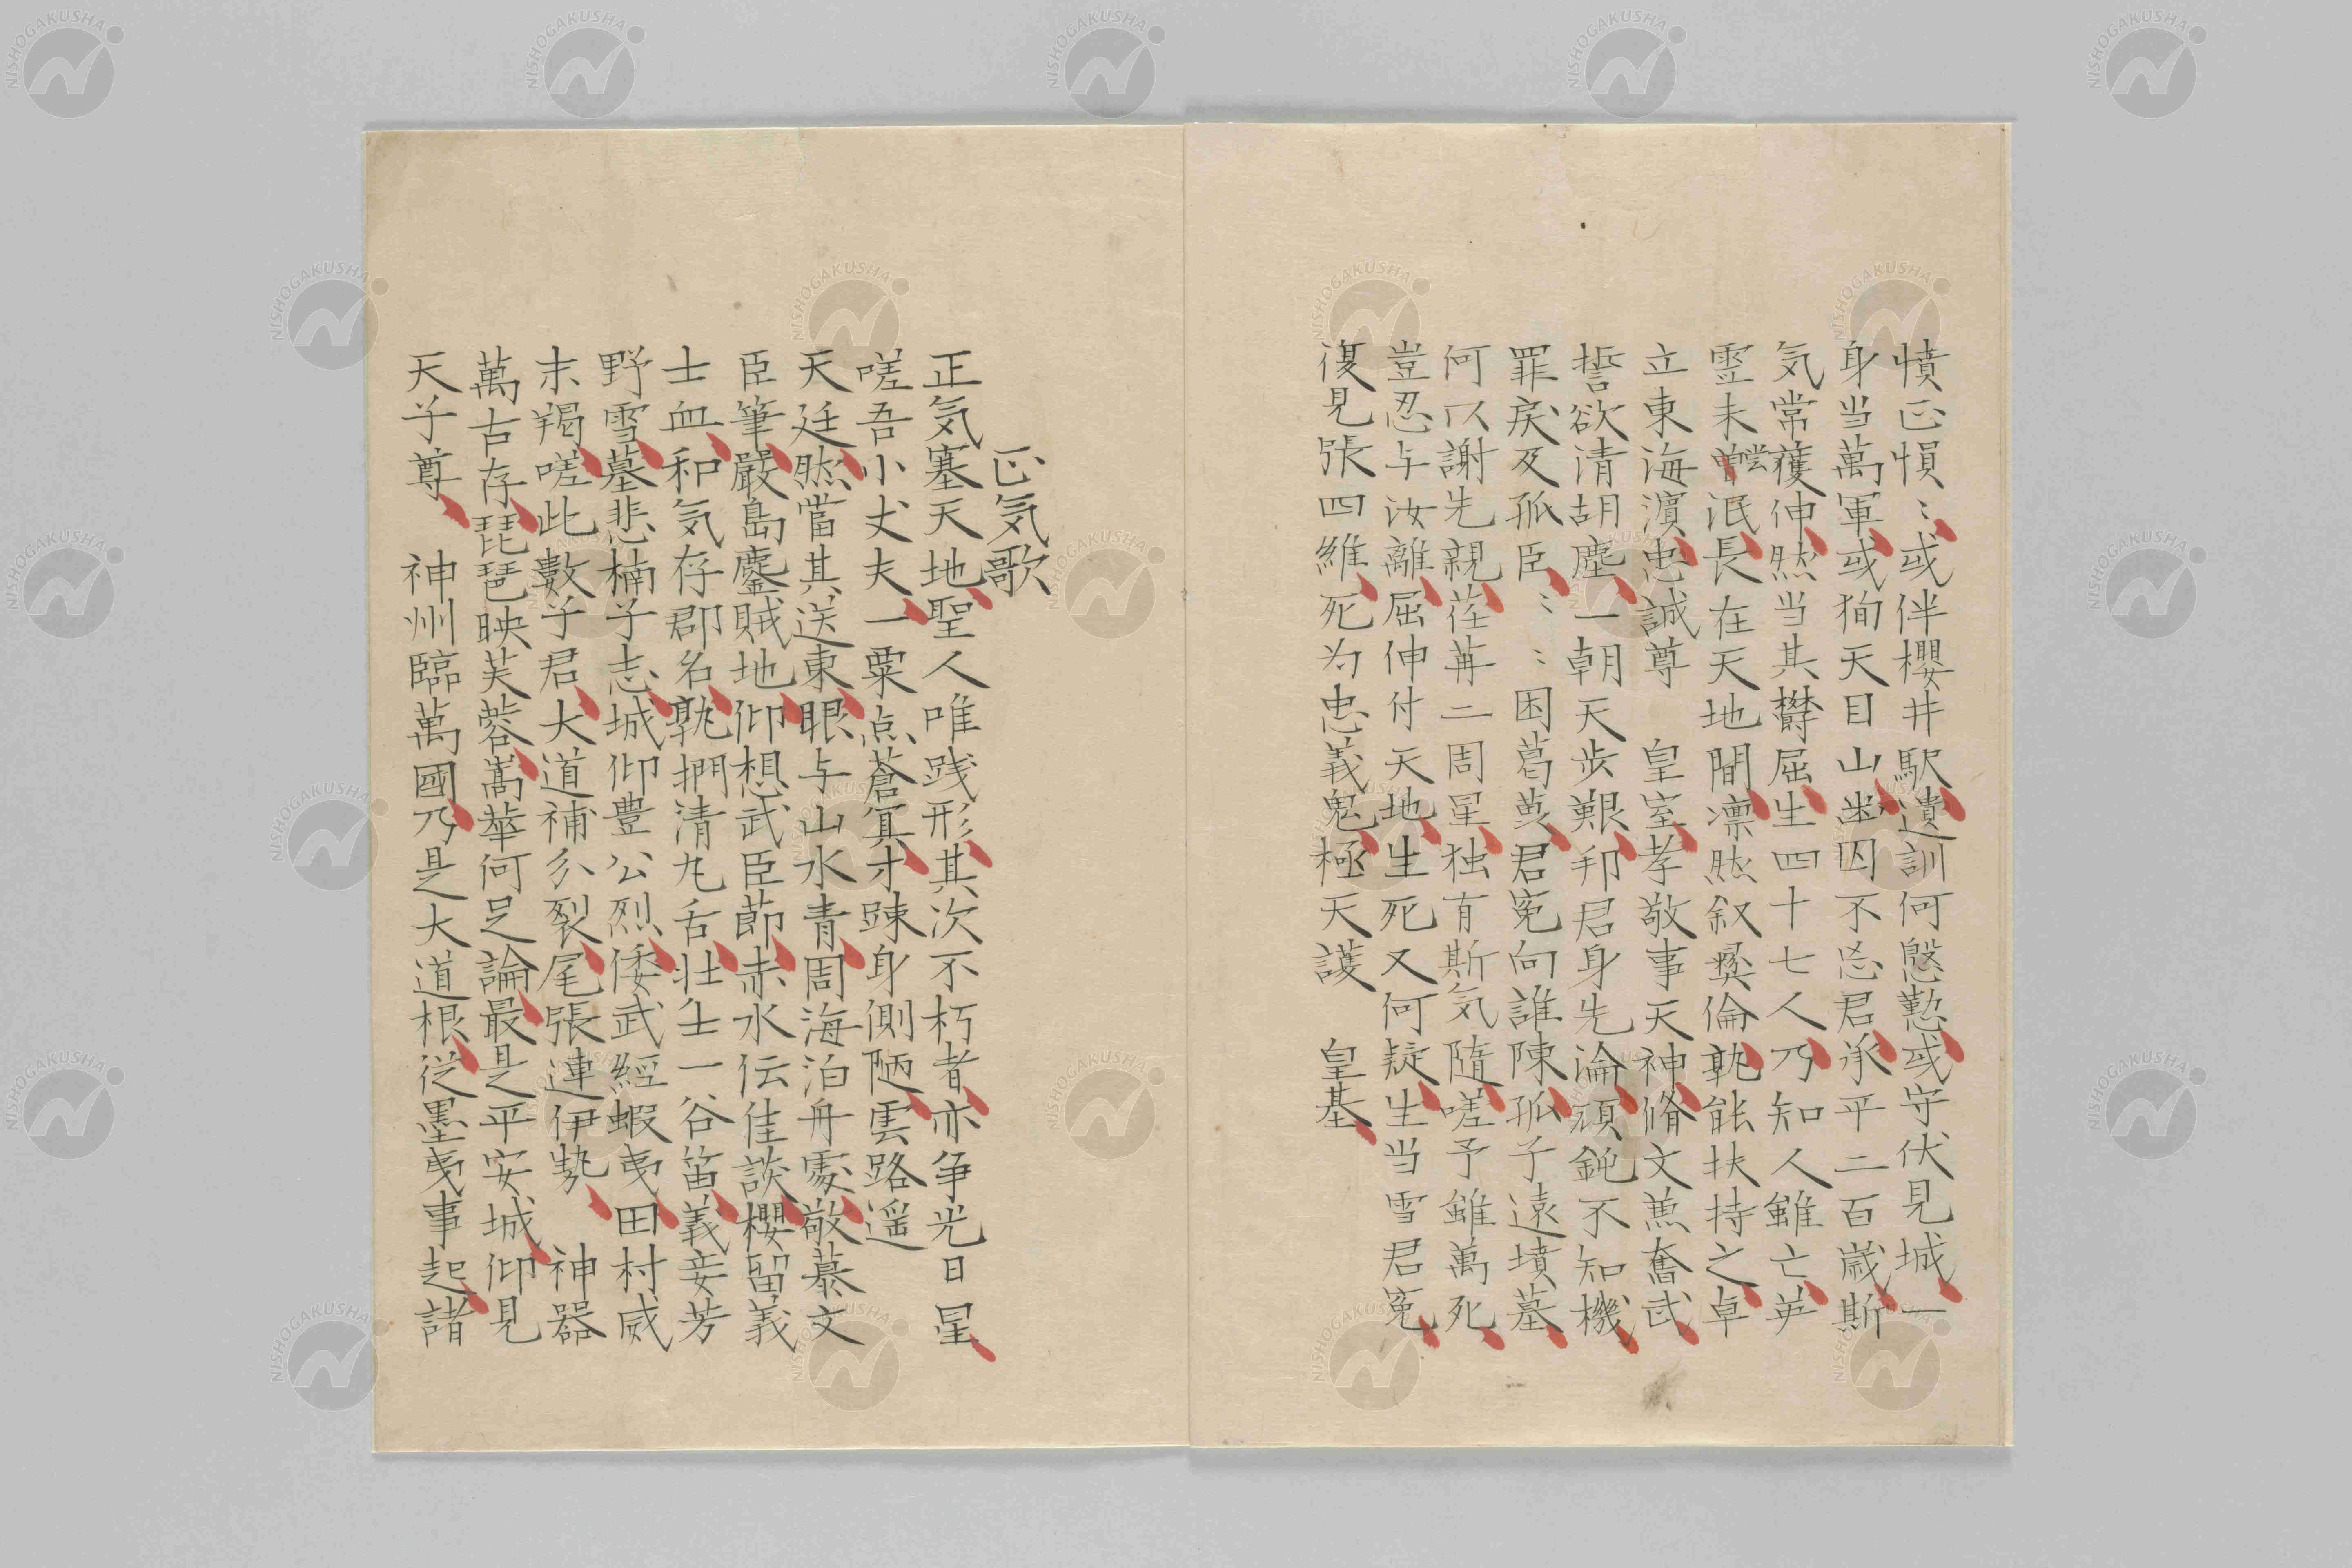 憤正愪〻或伴櫻井駅遺訓何慇懃或守伏見城一
身当萬軍或狥天目山幽囚不忘君承平二百歳斯
気常獲伸然当其欝屈生四十七人乃知人雖亡英
霊未嘗泯長在天地間凛然叙彝倫孰能扶持之卓
立東海濵忠誠尊　皇室孝敬事天神脩文兼奮武
誓欲清胡塵一朝天歩艱邦君身先淪頑鈍不知機
罪戻及孤臣〻〻困葛藟君寃向誰陳孤子遠墳墓
何以謝先親荏苒二周星独有斯気隨嗟予雖萬死
豈忍与汝離屈伸付天地生死又何疑生当雪君寃
復見張四維死为忠義鬼極天護　皇基
正気歌
正気塞天地聖人唯践形其次不朽者亦争光日星
嗟吾小丈夫一粟点蒼冥才踈身側陋雲路遥
天廷然當其送東眼与山水青周海泊舟處敬慕文
臣筆嚴島鏖賊地仰想武臣節赤水伝佳談櫻留義
士血和気存郡名孰捫清丸舌壮士一谷笛義妾芳
野雪墓悲楠子志城仰豊公烈倭武經蝦夷田村威
末羯嗟此數子君大道補分裂尾張連伊勢　神器
萬古存琵琶映芙蓉嵩華何足論最是平安城仰見
天子尊　神州臨萬國乃是大道根従墨夷事起諸